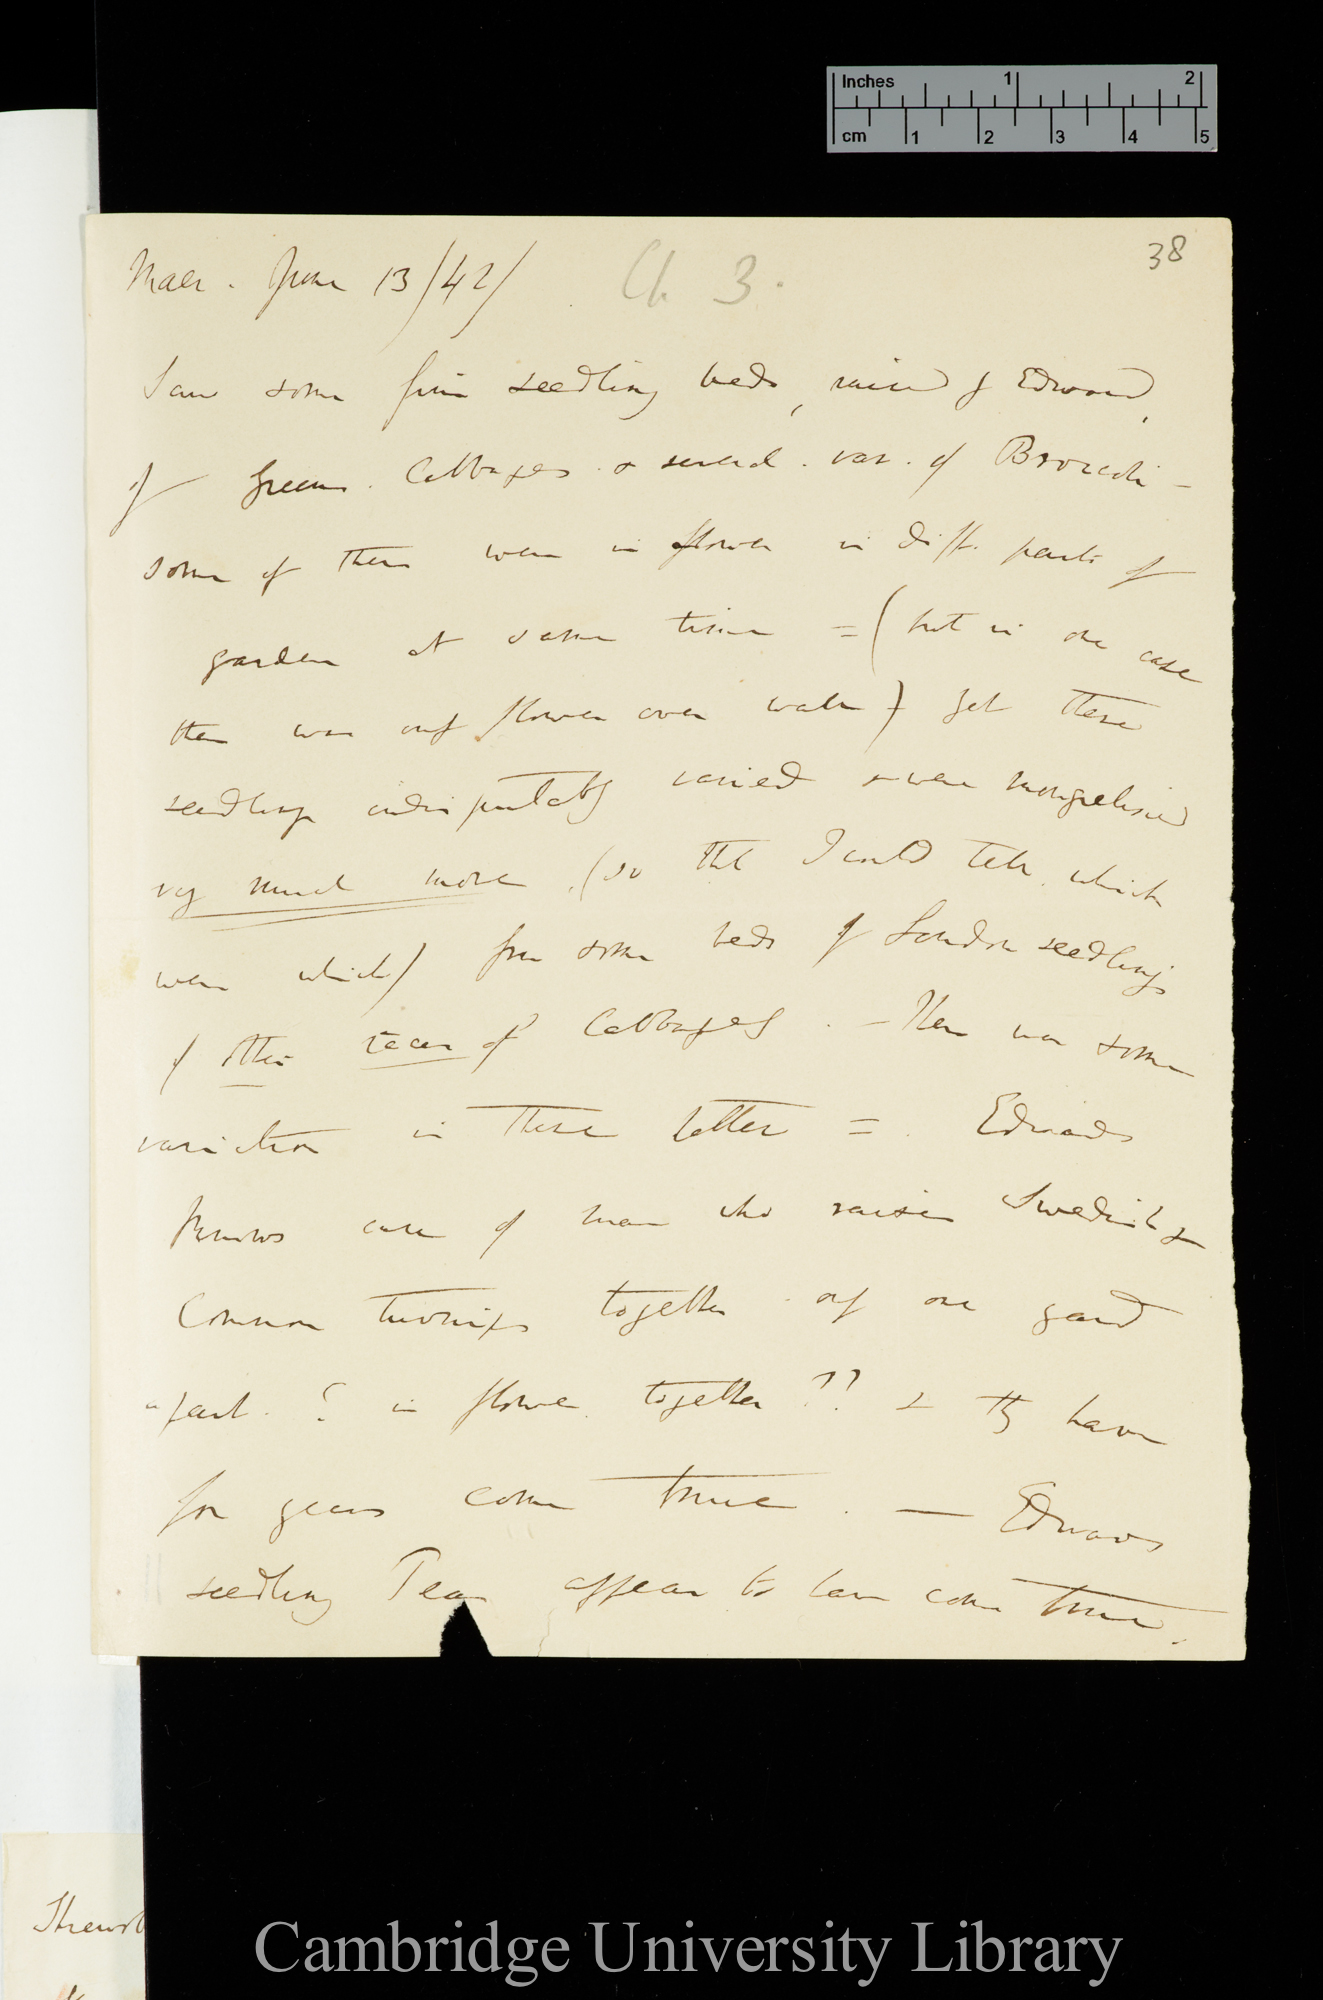 Inches 1 2
cm 1 2 3 4 5
38
Maer. June 13/42/
Ch 3.
Saw some fine seedling beds, raised by Edward,
of Greens. Cabbages & several. var. of Brocoli –
some of them were in flower in diff. parts of
garden at same time = (but in one case
there was only flower over wall) yet these
seedlings indisputably varied & were mongrelised
very much more (so that I could tell which
were which) from some beds of London seedlings
of other races of Cabbages. – There was some
variation in these latter = Edwards
knows case of man who raises Swedish &
Common turnips together only one yard
apart. ? in flower together ?? & they have
for years come true. — Edwards
seedling Peas appear to have come true.
Shrewsb
Cambridge University Library